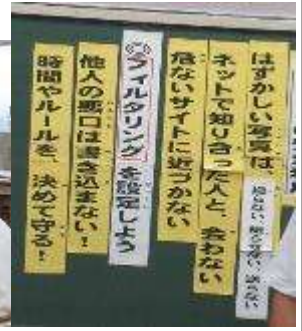 はずかしい写真は、
撮らない、撮らせない、送らない
ネットで知り合った人と、会わない
危ないサイトに近づかない
フィルタリングを設定しよう
他人の悪口は書き込まない!
時間やルールを、決めて守る!